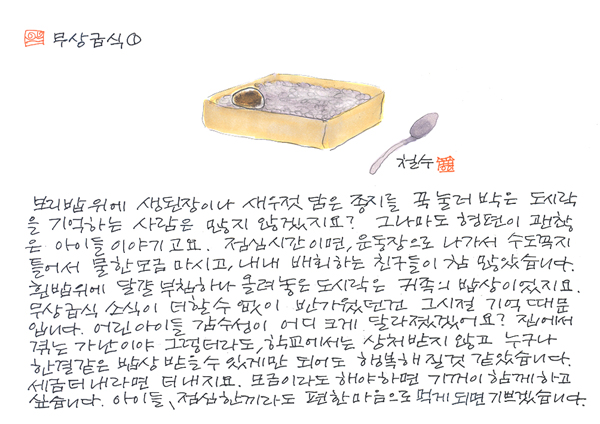 무상급식①
철수
보리밥 위에 생된장이나 새우젓 담은 종지를 꾹 눌러 박은 도시락
을 기억하는 사람은 많지 않겠지요? 그나마도 형편이 괜찮
은 아이들 이야기고요. 점심시간이면, 운동장으로 나가서 수도꼭지
틀어서 물 한모금 마시고, 내내 배회하는 친구들이 참 많았습니다.
흰밥위에 달걀 부침하나 올려놓은 도시락은 귀족의 밥상이었지요.
무상급식 소식이 더할 수 없이 반가웠던건 그시절 기억 때문
입니다. 어린 아이들 감수성이 어디 크게 달라졌겠어요? 집에서
겪는 가난이야 그렇더라도, 학교에서는 상처받지 않고 누구나
한결같은 밥상 받을 수 있게만 되어도 행복해질것 같았습니다.
세금 더 내라면 더 내지요. 모금이라도 해야하면 기꺼이 함께하고
싶습니다. 아이들, 점심 한끼라도 편한 마음으로 먹게 되면 기쁘겠습니다.